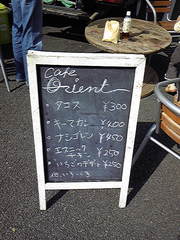 Cafe
Orient
・タコス ¥300
・キーマカレー ¥400
・ナシゴレン ¥450
・エスニック ¥250
・いちごのデザート ¥250